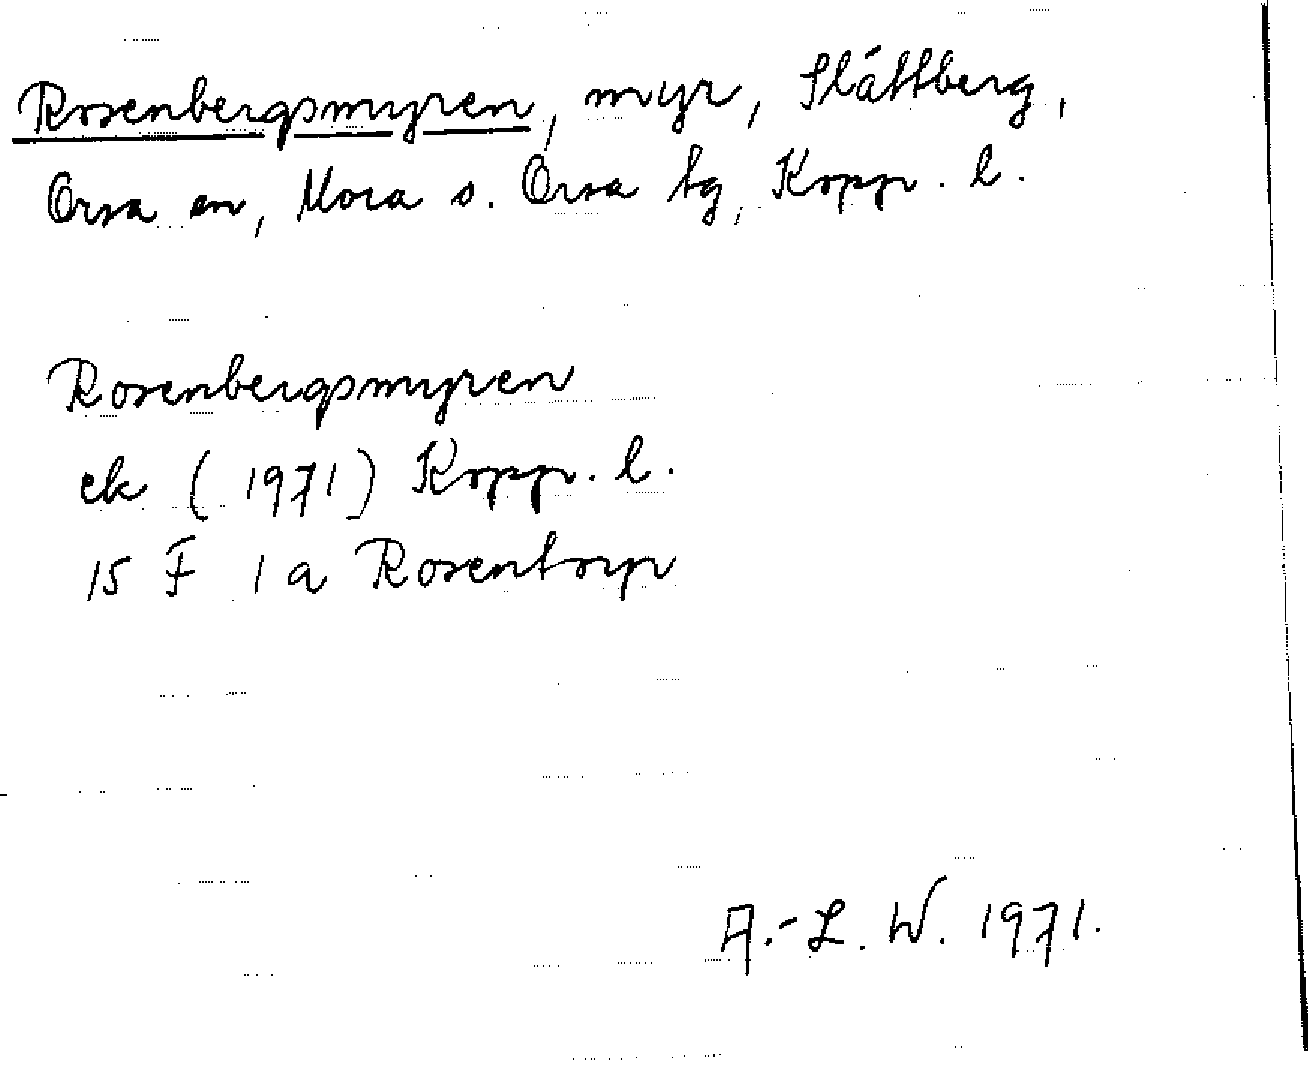 Rosenbergsmyren, myr, Slättberg,
Orsa sn, Mora o. Orsa tg, Kopp. l.
Rosenbergsmyren
ek (1971) Kopp. l.
15 F 1 a Rosentorp
A.-L. W. 1971.